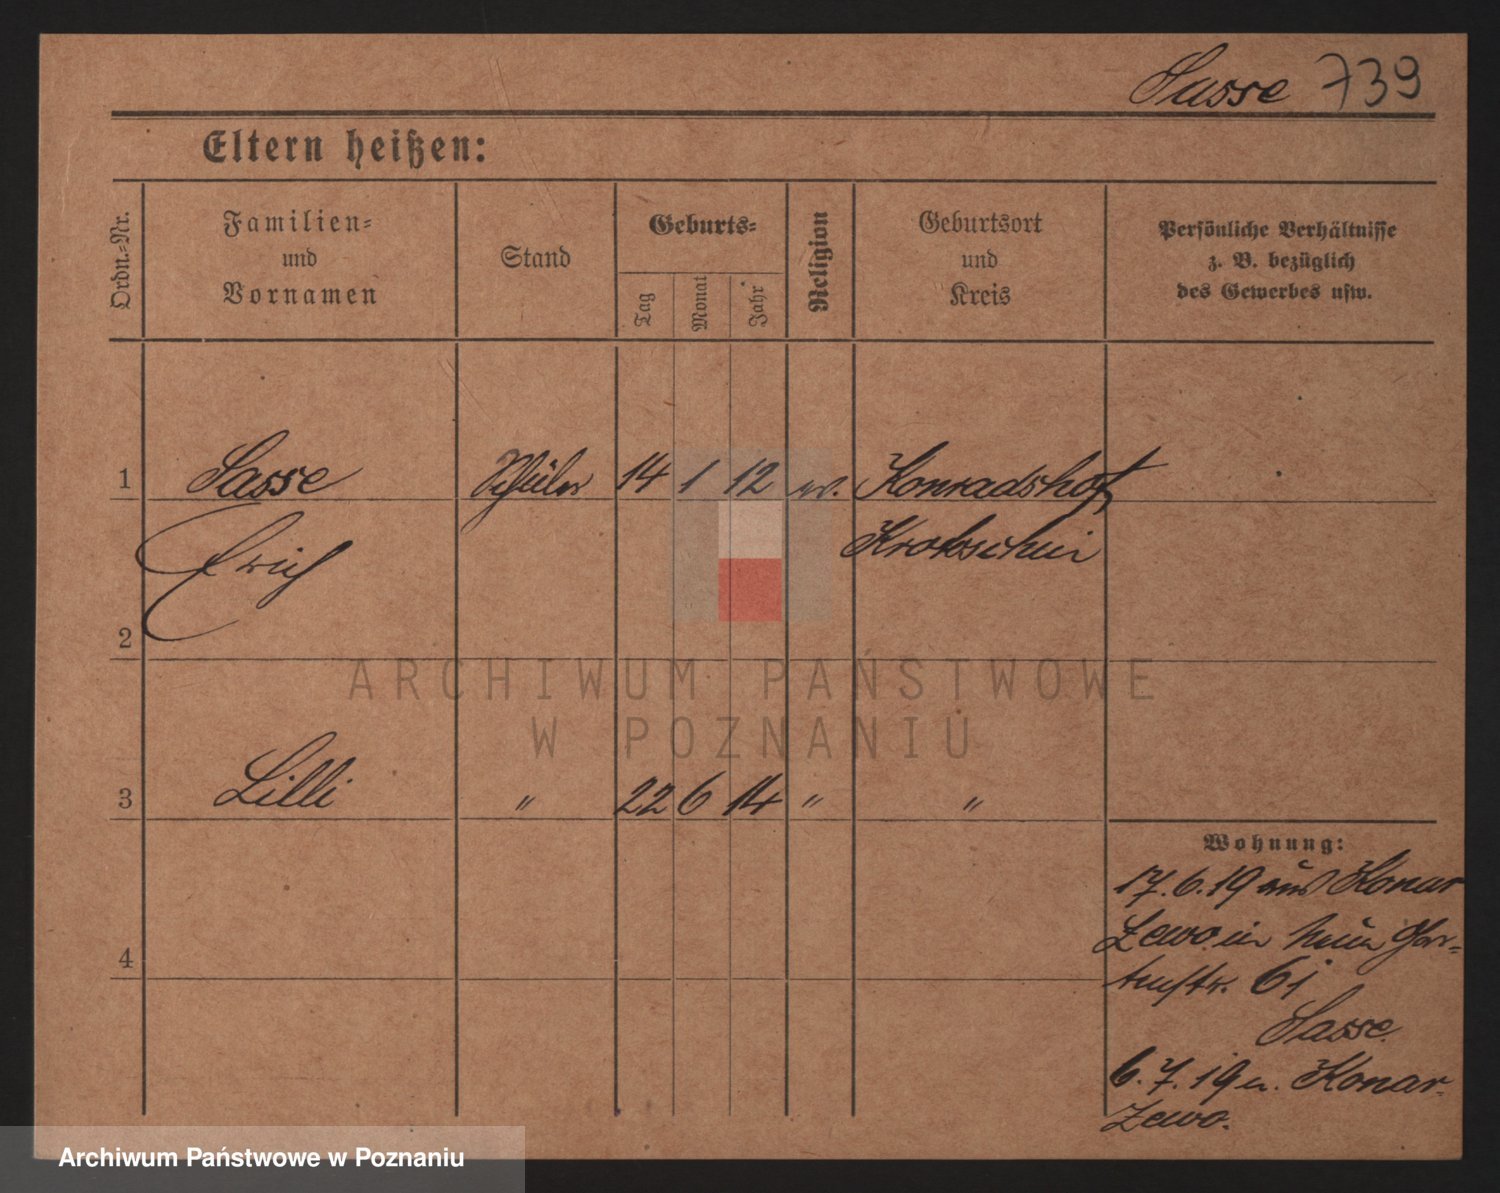 Sasse 739
Eltern heißen:
Ordn.-Nr.
Familien-
und
Vornamen
Stand
Geburts-
Tag
Monat
Jahr
Religion
Geburtsort
und
Kreis
Persönliche Verhältnisse
z. B. bezüglich
des Gewerbes usw.
1 Sasse Schüler 14 1 12 ev. Konradshof
Erich Krotoschin
2
3 Lilli " 22 6 14 " "
Wohnung:
17.6.19 aus Konar
zewo in
4
61
Sasse.
6.7.19 n. Konar-
zewo.
ARCHIWUM PAŃSTWOWE
W POZNANIU
Archiwum Państwowe w Poznaniu